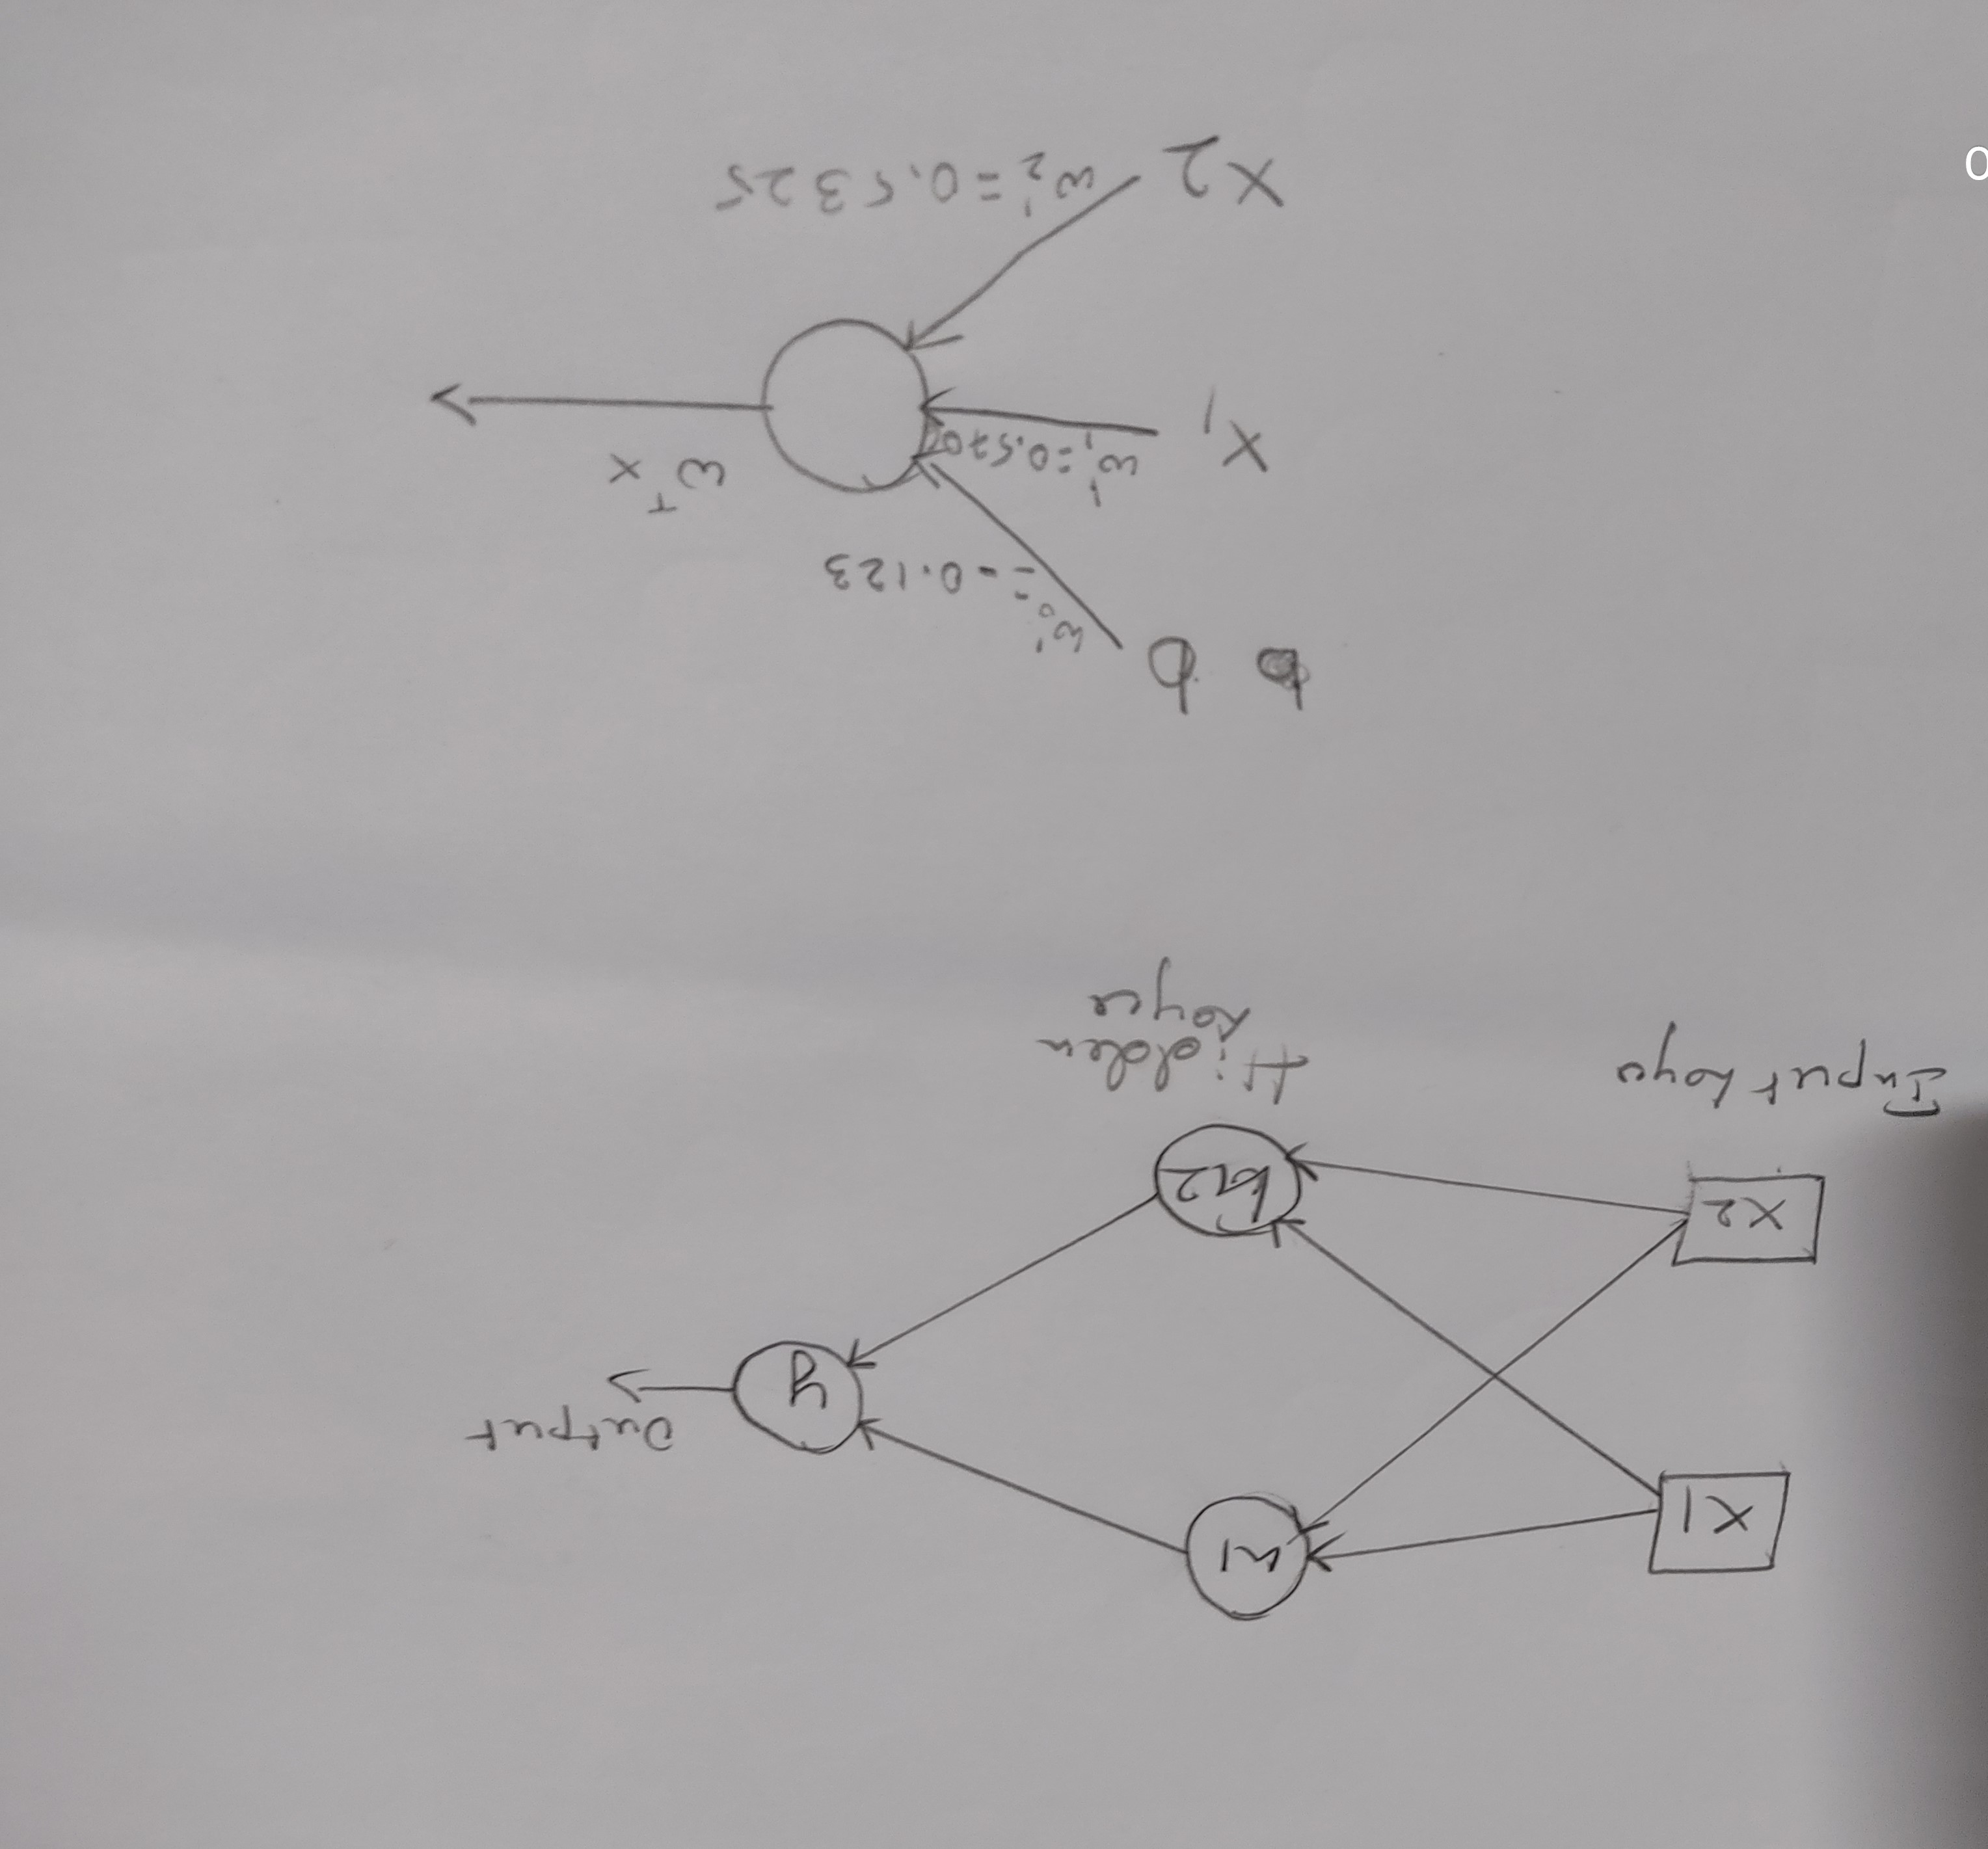 x1
h1
Output
y
x2
h2
Input Layer
Hidden
Layer
b b
w₀¹
= -0.123
x₁ w₁¹ = 0.570
wᵀx
x2 w₂¹ = 0.5325
0